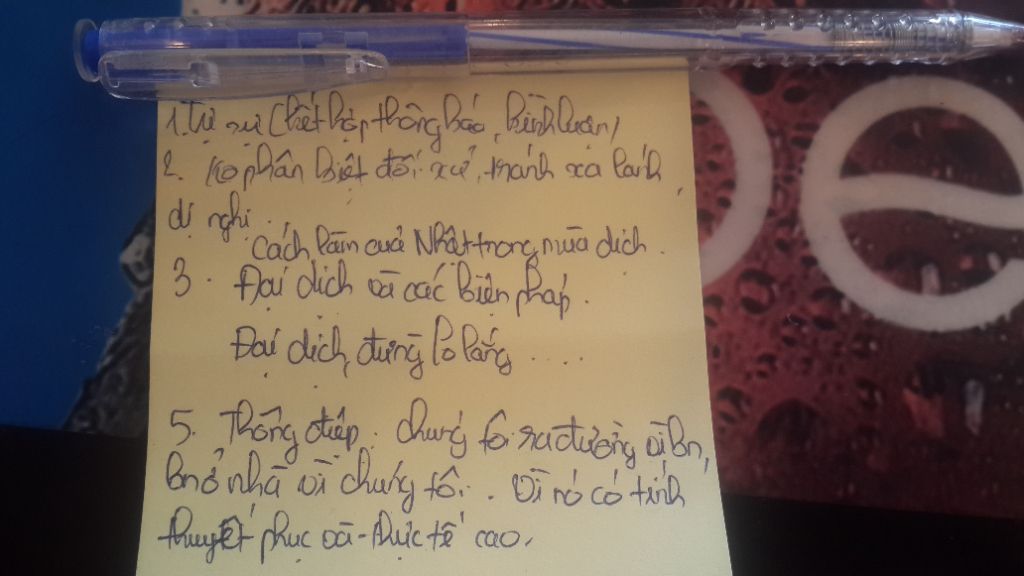 1. Tự sự (kết hợp thông báo, bình luận)
2. Ko phân biệt đối xử, tránh xa lánh,
dị nghị.
Cách làm của Nhật trong mùa dịch.
3. Đại dịch và các biện pháp.
Đại dịch, đừng lo lắng ....
5. Thông điệp. chúng tôi ra đường vì bn,
bn ở nhà vì chúng tôi. Vì nó có tính
thuyết phục và thực tế cao.
oe